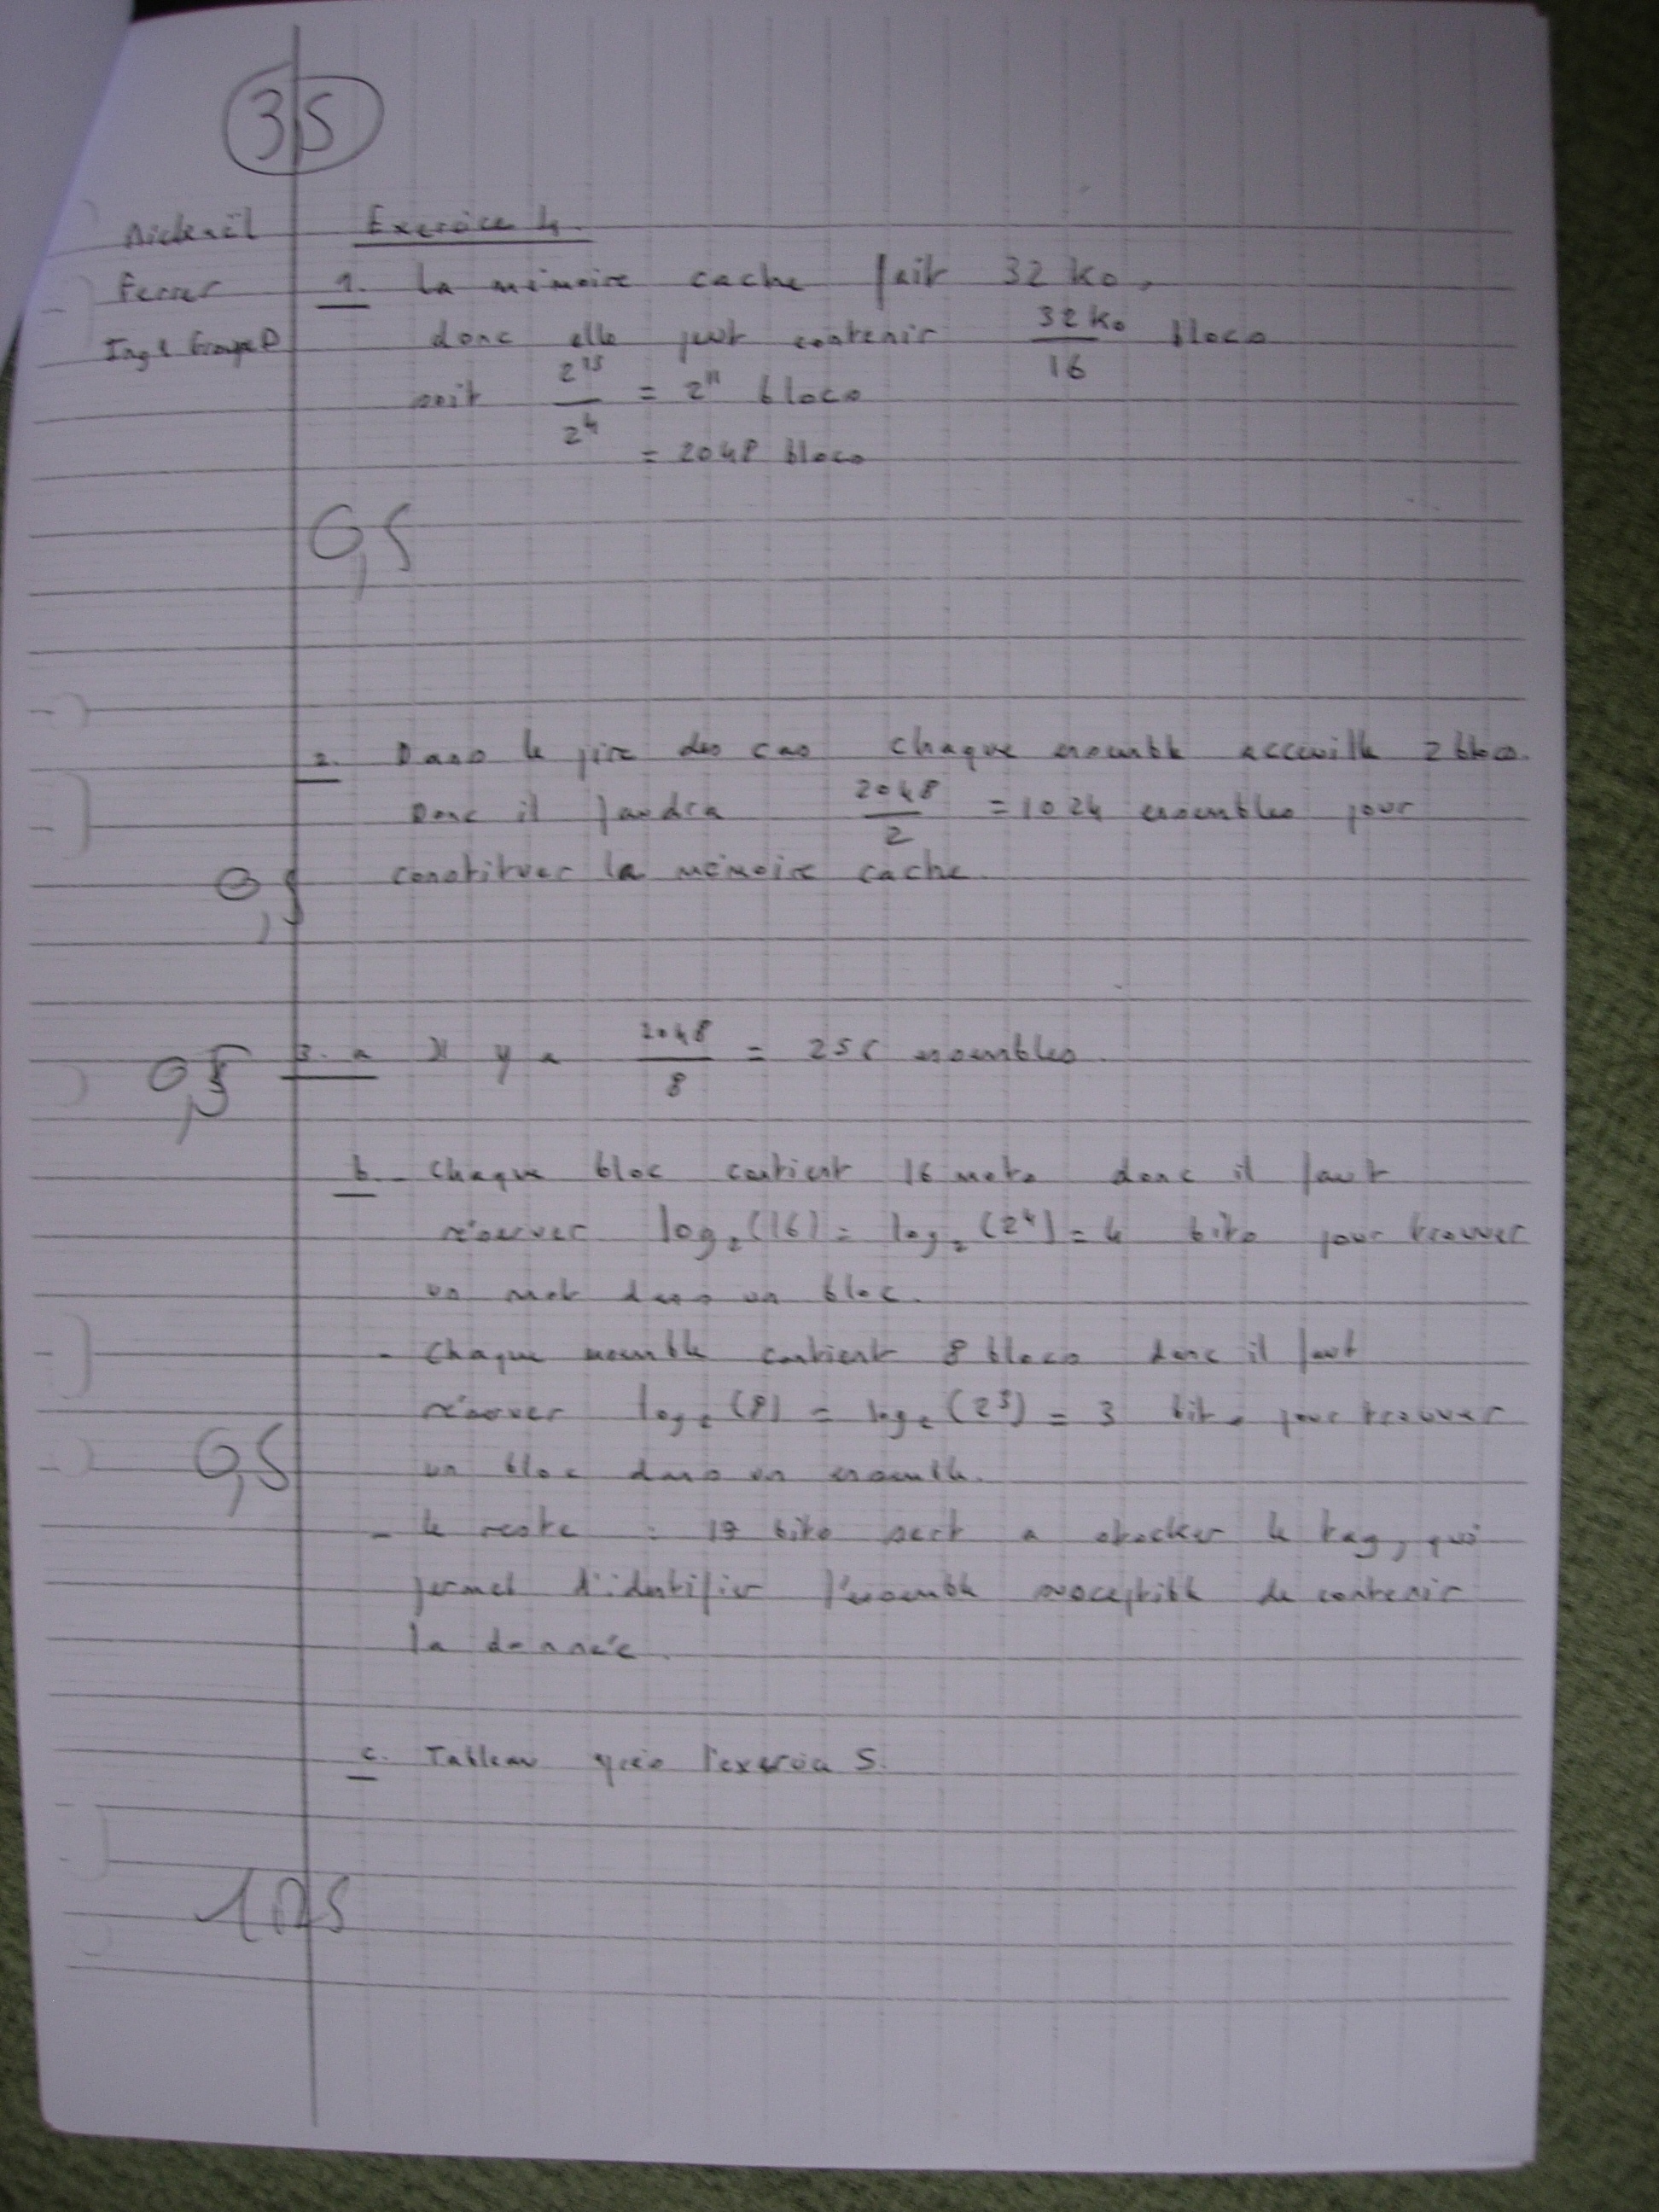 3,5
Mickaël
Ferrer
Ing1 Groupe D
Exercice 4.
1. La mémoire cache fait 32 ko,
donc elle peut contenir 32 ko / 16 blocs
soit 2^15 / 2^4 = 2^11 blocs
= 2048 blocs
0,5
2. Dans le pire des cas chaque ensemble acceuille 2 blocs.
Donc il faudra 2048 / 2 = 1024 ensembles pour
constituer la mémoire cache.
0,5
0,5
3. a Il y a 2048 / 8 = 256 ensembles.
b. - Chaque bloc contient 16 mots donc il faut
réserver log2(16) = log2(2^4) = 4 bits pour trouver
un mot dans un bloc.
- Chaque ensemble contient 8 blocs donc il faut
réserver log2(8) = log2(2^3) = 3 bits pour trouver
un bloc dans un ensemble.
0,5
- le reste : bits sert a stocker le tag, qui
permet d'identifier l'ensemble susceptible de contenir
la donnée.
c. Tableau après l'exercice 5.